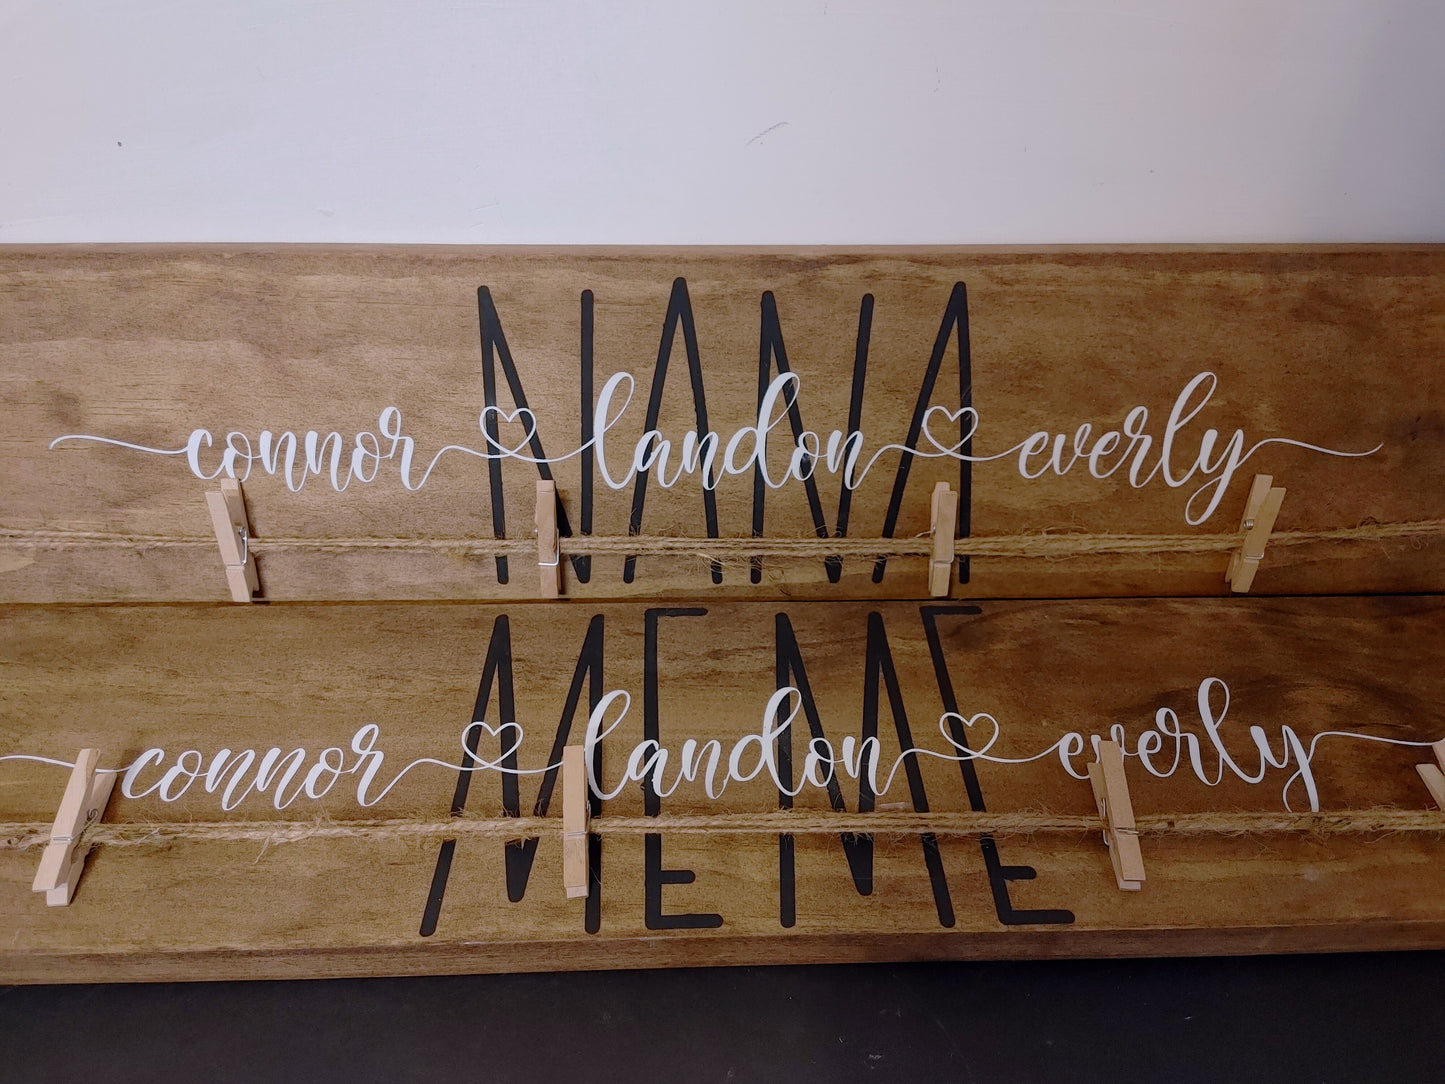 NANA
connor landon everly
MEME
connor landon everly